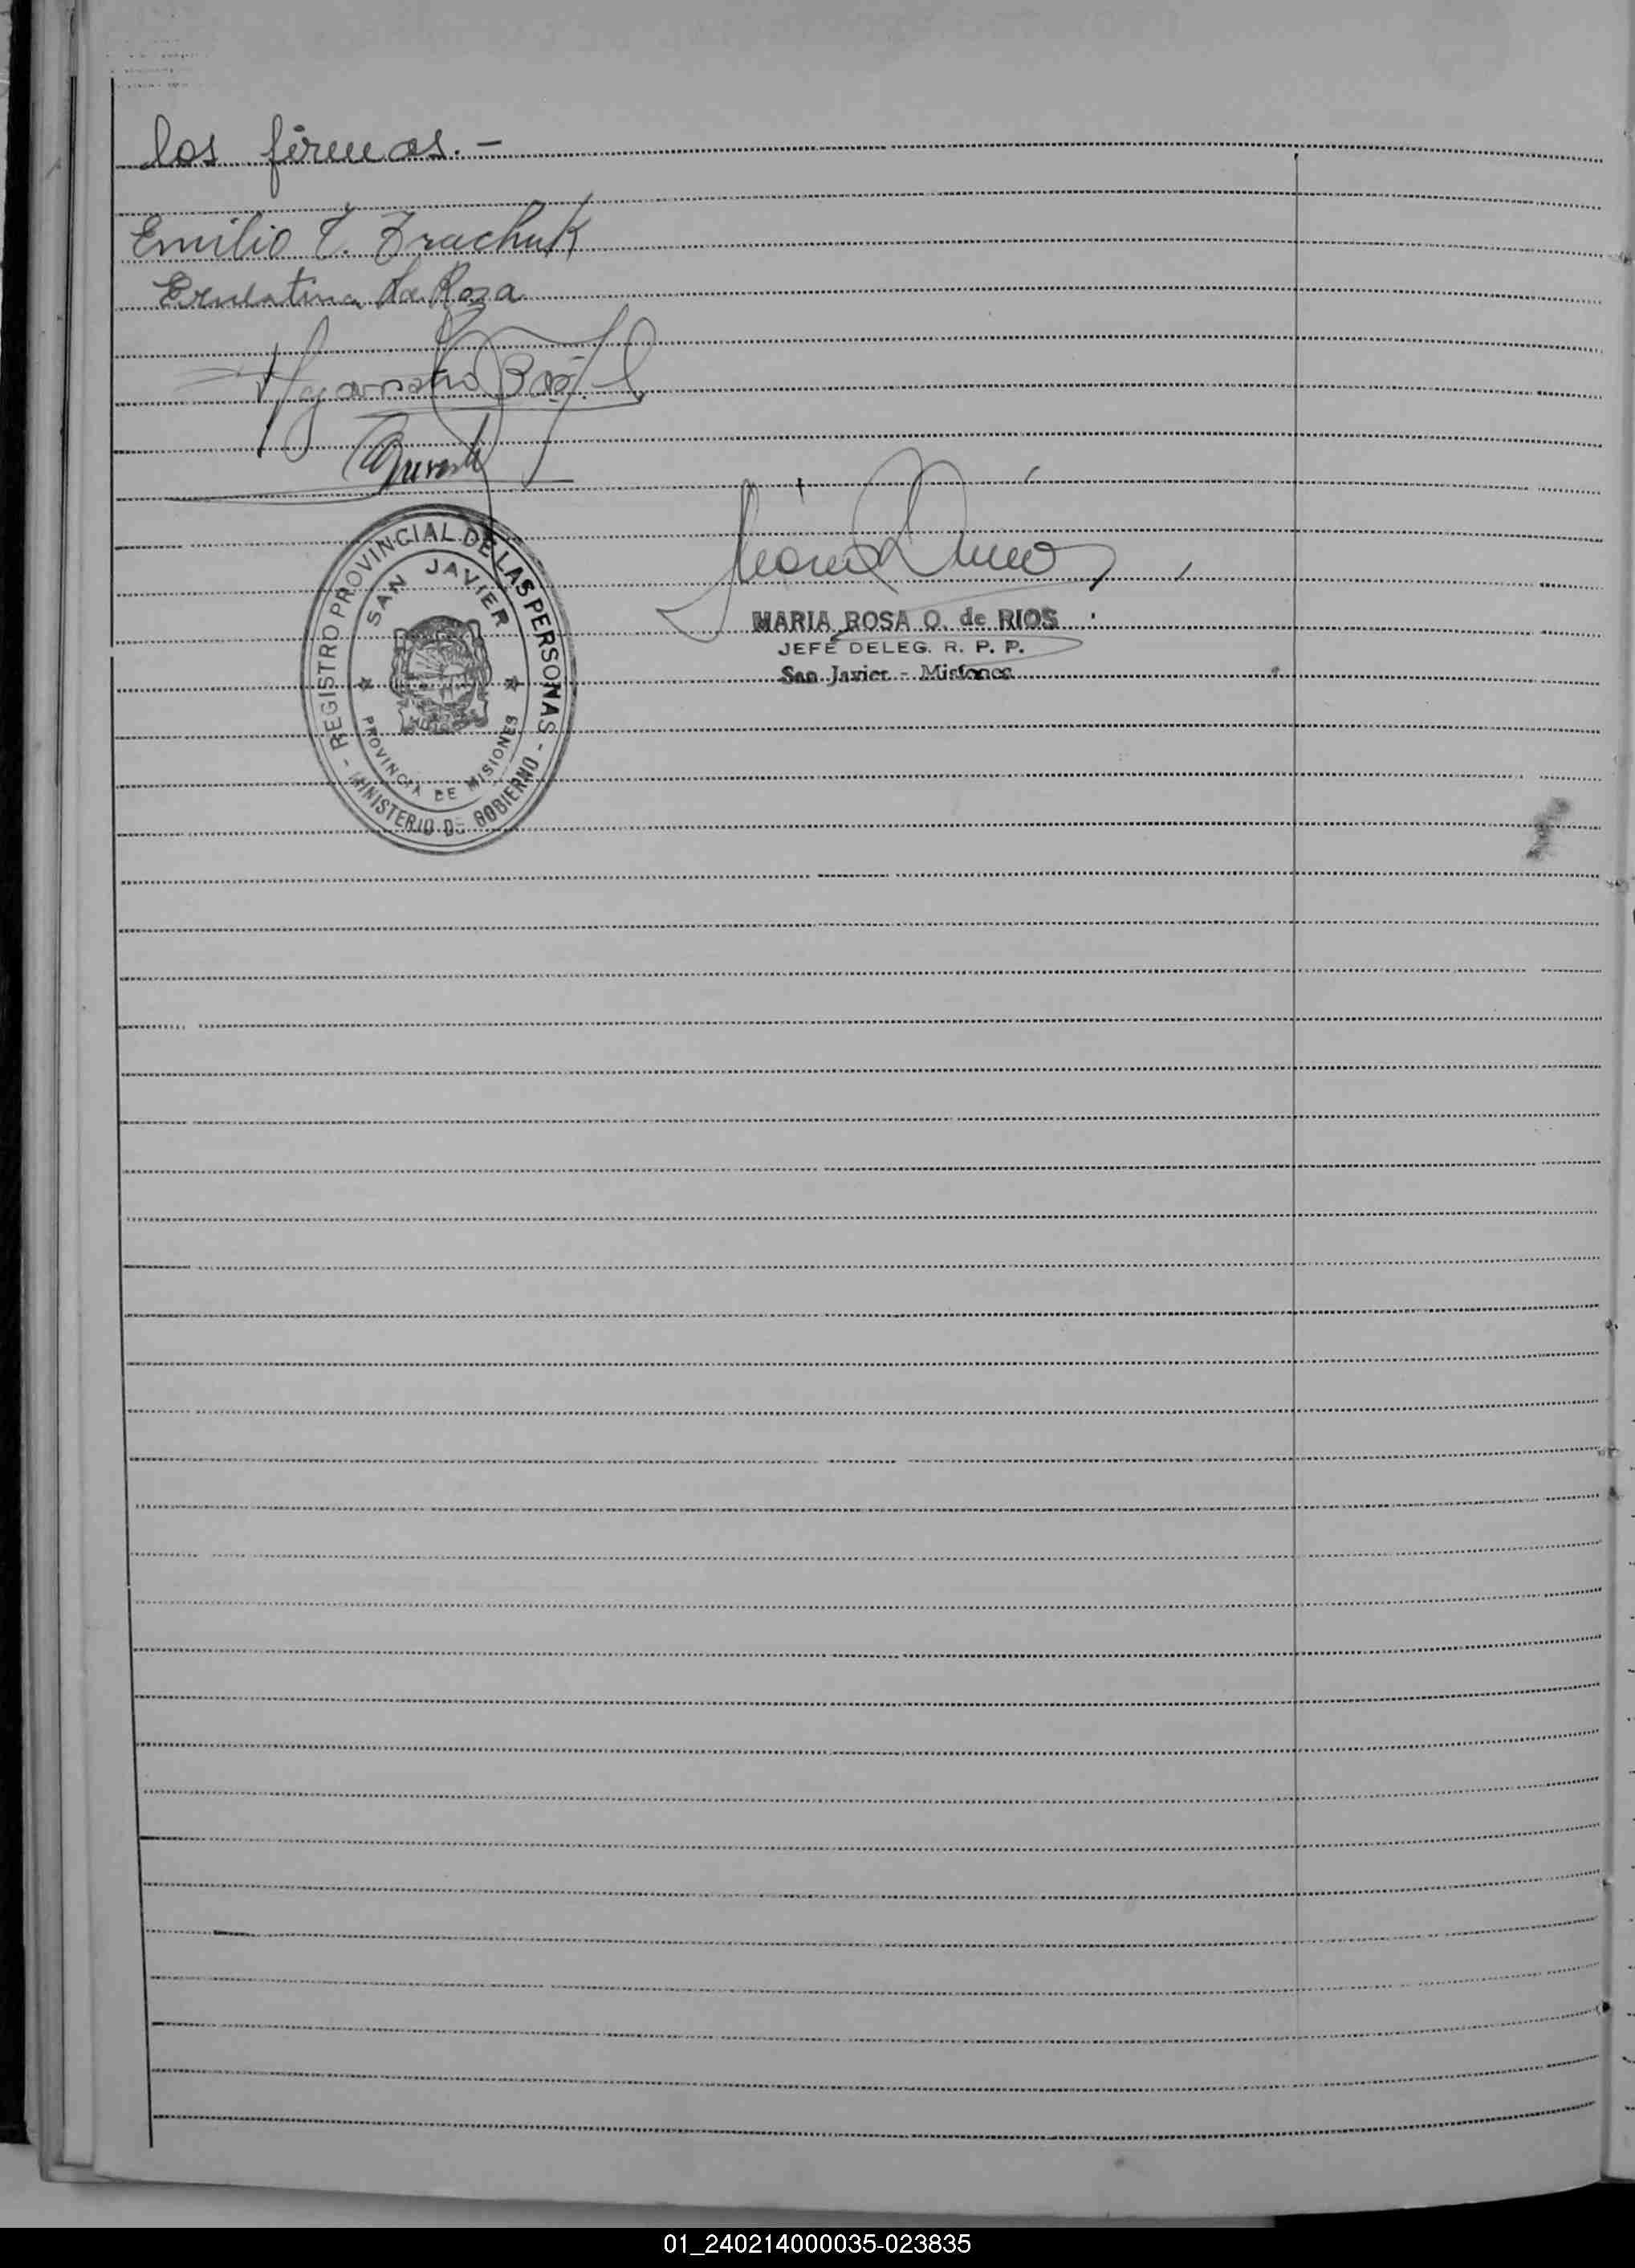 los firmas.-
Emilio Z. Trachuk
Ernestina Da Roza
REGISTRO PROVINCIAL DE LAS PERSONAS
SAN JAVIER
PROVINCIA DE MISIONES
- MINISTERIO DE GOBIERNO -
MARIA ROSA O. de RIOS
JEFE DELEG. R. P. P.
San Javier - Misiones
01_240214000035-023835